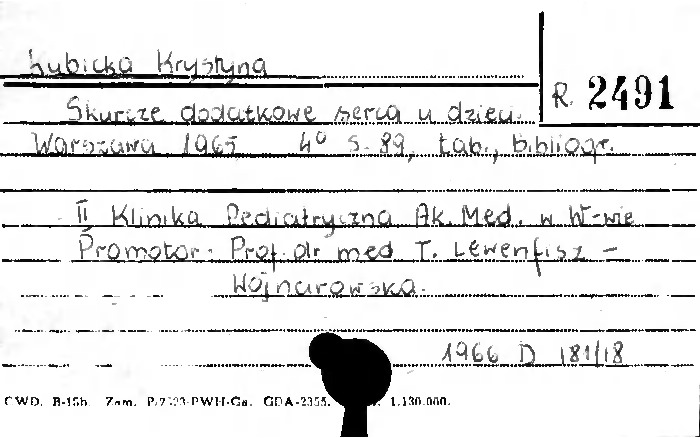 Łubicka Krystyna
R. 2491
Skurcze dodatkowe serca u dzieci.
Warszawa 1965 4° s. 89, tab., bibliogr.
II Klinika Pediatryczna Ak. Med. w W-wie
Promotor: Prof. dr med T. Lewenfisz -
Wojnarowska.
1966 D 181/18
CWD. B-15b. Zam. GDA-2355. 1.130.000.